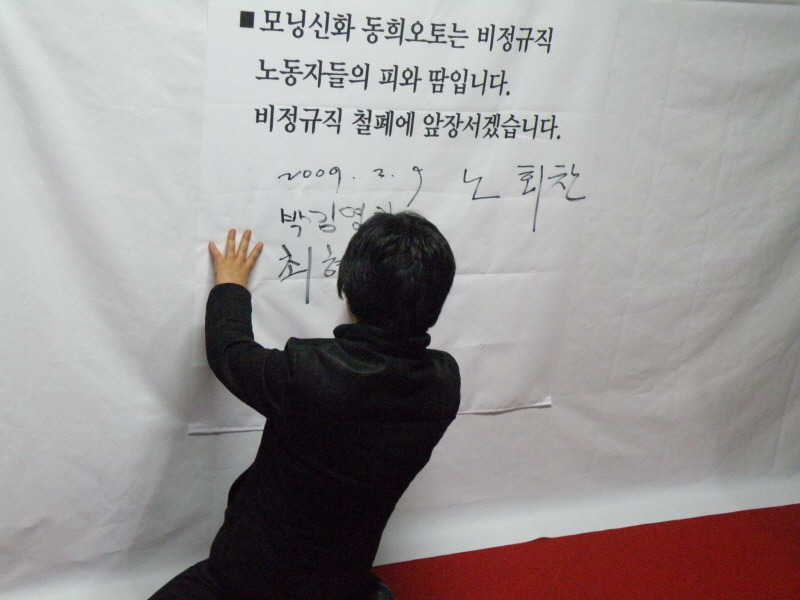 ■ 모닝신화 동희오토는 비정규직
노동자들의 피와 땀입니다.
비정규직 철폐에 앞장서겠습니다.
2009. 2. 9 노회찬
박김영
최